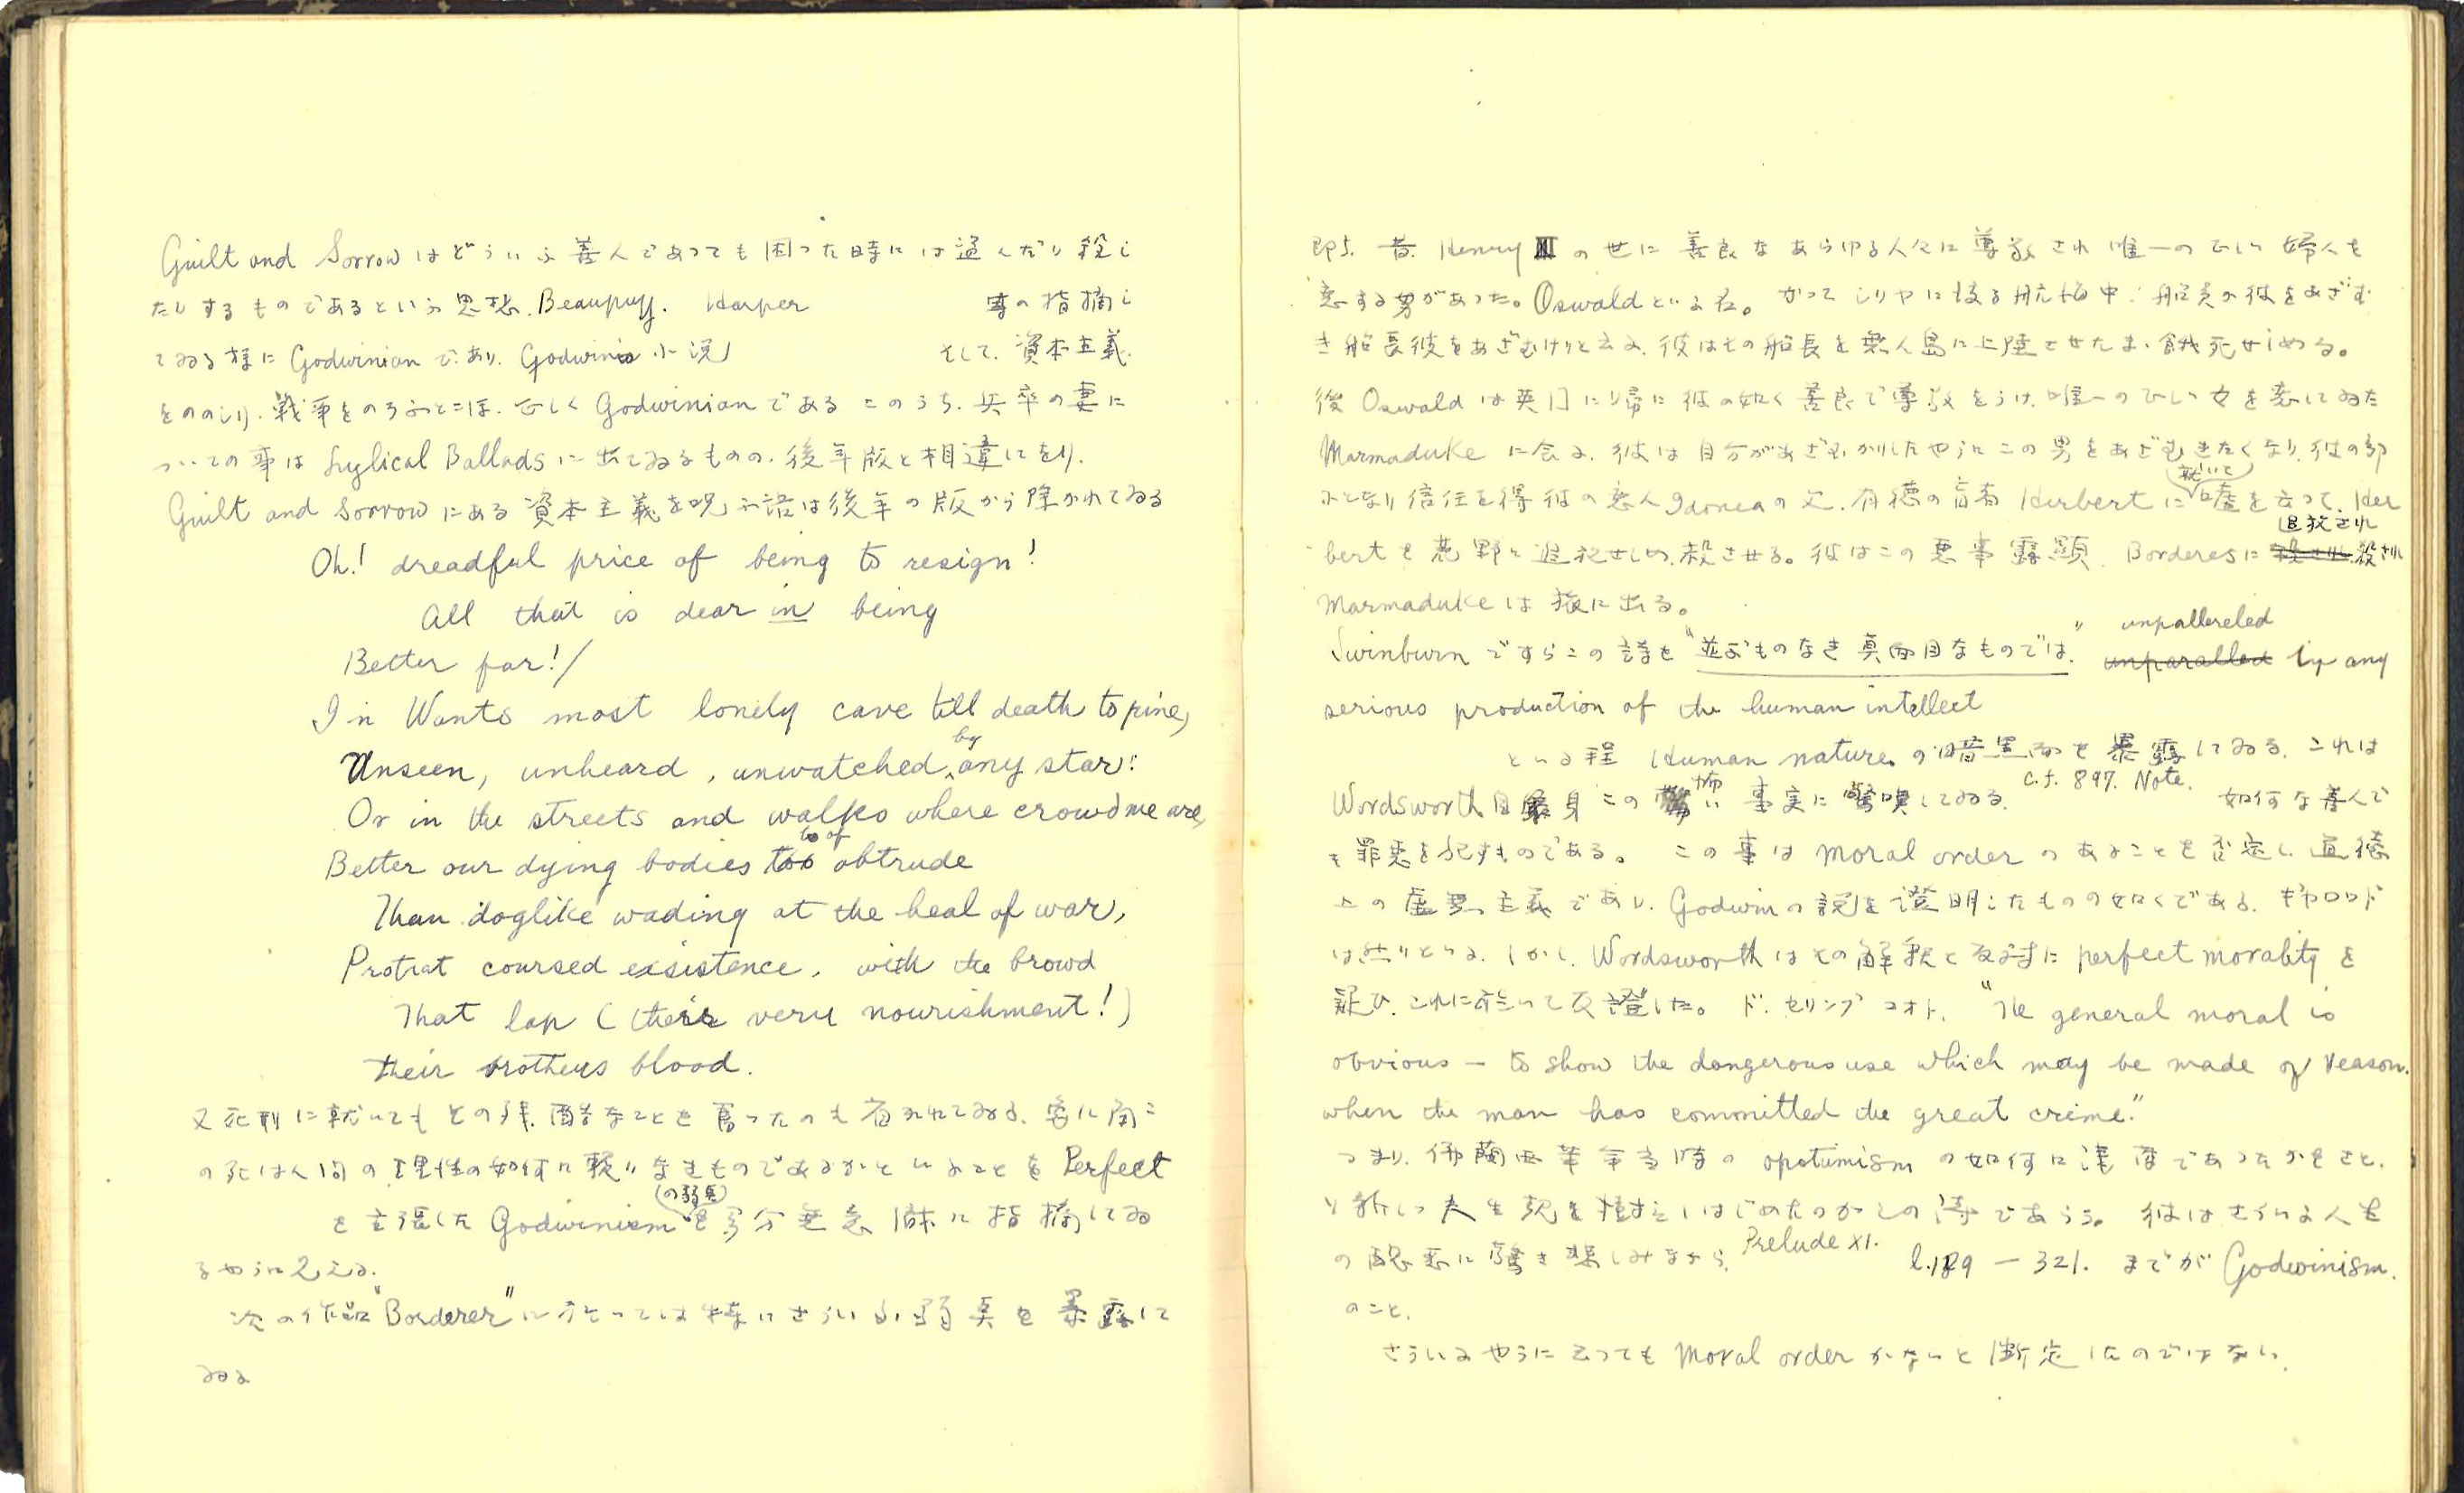 Guilt and Sorrow はどういふ善人であっても困った時には盗んだり殺し
たりするものであるといふ思想. Beaupuy. Harper 等の指摘し
てゐる様に Godwinian であり. Godwin 小説 そして. 資本主義
をののしり. 戦争をのろふところは. 正しく Godwinian である このうち. 兵卒の妻に
ついての事は Lyrical Ballads に出てゐるものの. 後年版と相違してをり.
Guilt and Sorrow にある資本主義を呪ふ語は後年の版から除かれてゐる
Oh! dreadful price of being to resign!
All that is dear in being
Better far!/
In Wants most lonely cave till death to pine,
Unseen, unheard, unwatched by any star:
Or in the streets and walks where crowd me are,
Better our dying bodies to obtrude
Than doglike wading at the heal of war,
Protrat coursed exsistence, with the browd
That lap (their very nourishment!)
their brothers blood.
又死刑に就いてもその残酷なことを
の死は人間の理性の如何に頼りなきものであるかといふことを Perfect
を主張した Godwinism (の弱点) を多分無意識に指摘してゐ
るやうに見える.
次の作品 "Borderer" に於ては特にさういふ弱点を暴露して
ゐる
即ち. 昔. Henry III の世に善良なあらゆる人々に尊敬され唯一の 婦人を
恋する男があった。Oswald といふ名。かつてシリヤに渡る航海中. 船員が彼をあざむ
き船長彼をあざむけりと云ふ. 彼はその船長を無人島に上陸させたまゝ餓死せしめる。
後 Oswald は英国に帰 彼の如く善良で尊敬をうけ. 唯一の 女を恋してゐた
Marmaduke に会ふ. 彼は自分があざむかれしたやうにこの男をあざむきたくなり. 彼の部
下となり信任を得彼の恋人 Idonea の父. 有徳の盲者 Herbert に(就いて)嘘を云って. Her
bert を荒野に追放せしめ. 殺させる。彼はこの悪事露顕. Borderes に 追放され 殺され
Marmaduke は旅に出る。
Swinburn ですらこの詩を "並ぶものなき真面目なものでは." unpallereled by any
serious production of the human intellect
といふ程 Human nature の暗黒面を暴露してゐる. これは
Wordsworth 自身この怖い事実に驚嘆してゐる. c.f. 897. Note. 如何な善人で
も罪悪を犯すものである。 この事は moral order のあることを否定し. 道徳
上の虚無主義であり. Godwin の説を證明したものの如くである. ギヤロッド
は然りといふ. しかし. Wordsworth はその解釈と反対に perfect morality を
疑ひ. これに於いて反證した。 ド. セリンクコオト. "The general moral is
obvious — to show the dangerous use which may be made of reason.
when the man has committed the great crime."
つまり. 佛蘭西革命当時の opotumism の如何に浅薄であったかをさと.
り新しい人生観を樹立しはじめたのがこの詩であらう。 彼はさういふ人生
の醜悪に驚き悲しみながら. Prelude XI. l.189 — 321. までが Godwinism.
のこと.
さういふやうに云っても Moral order がないと断定したのではない.